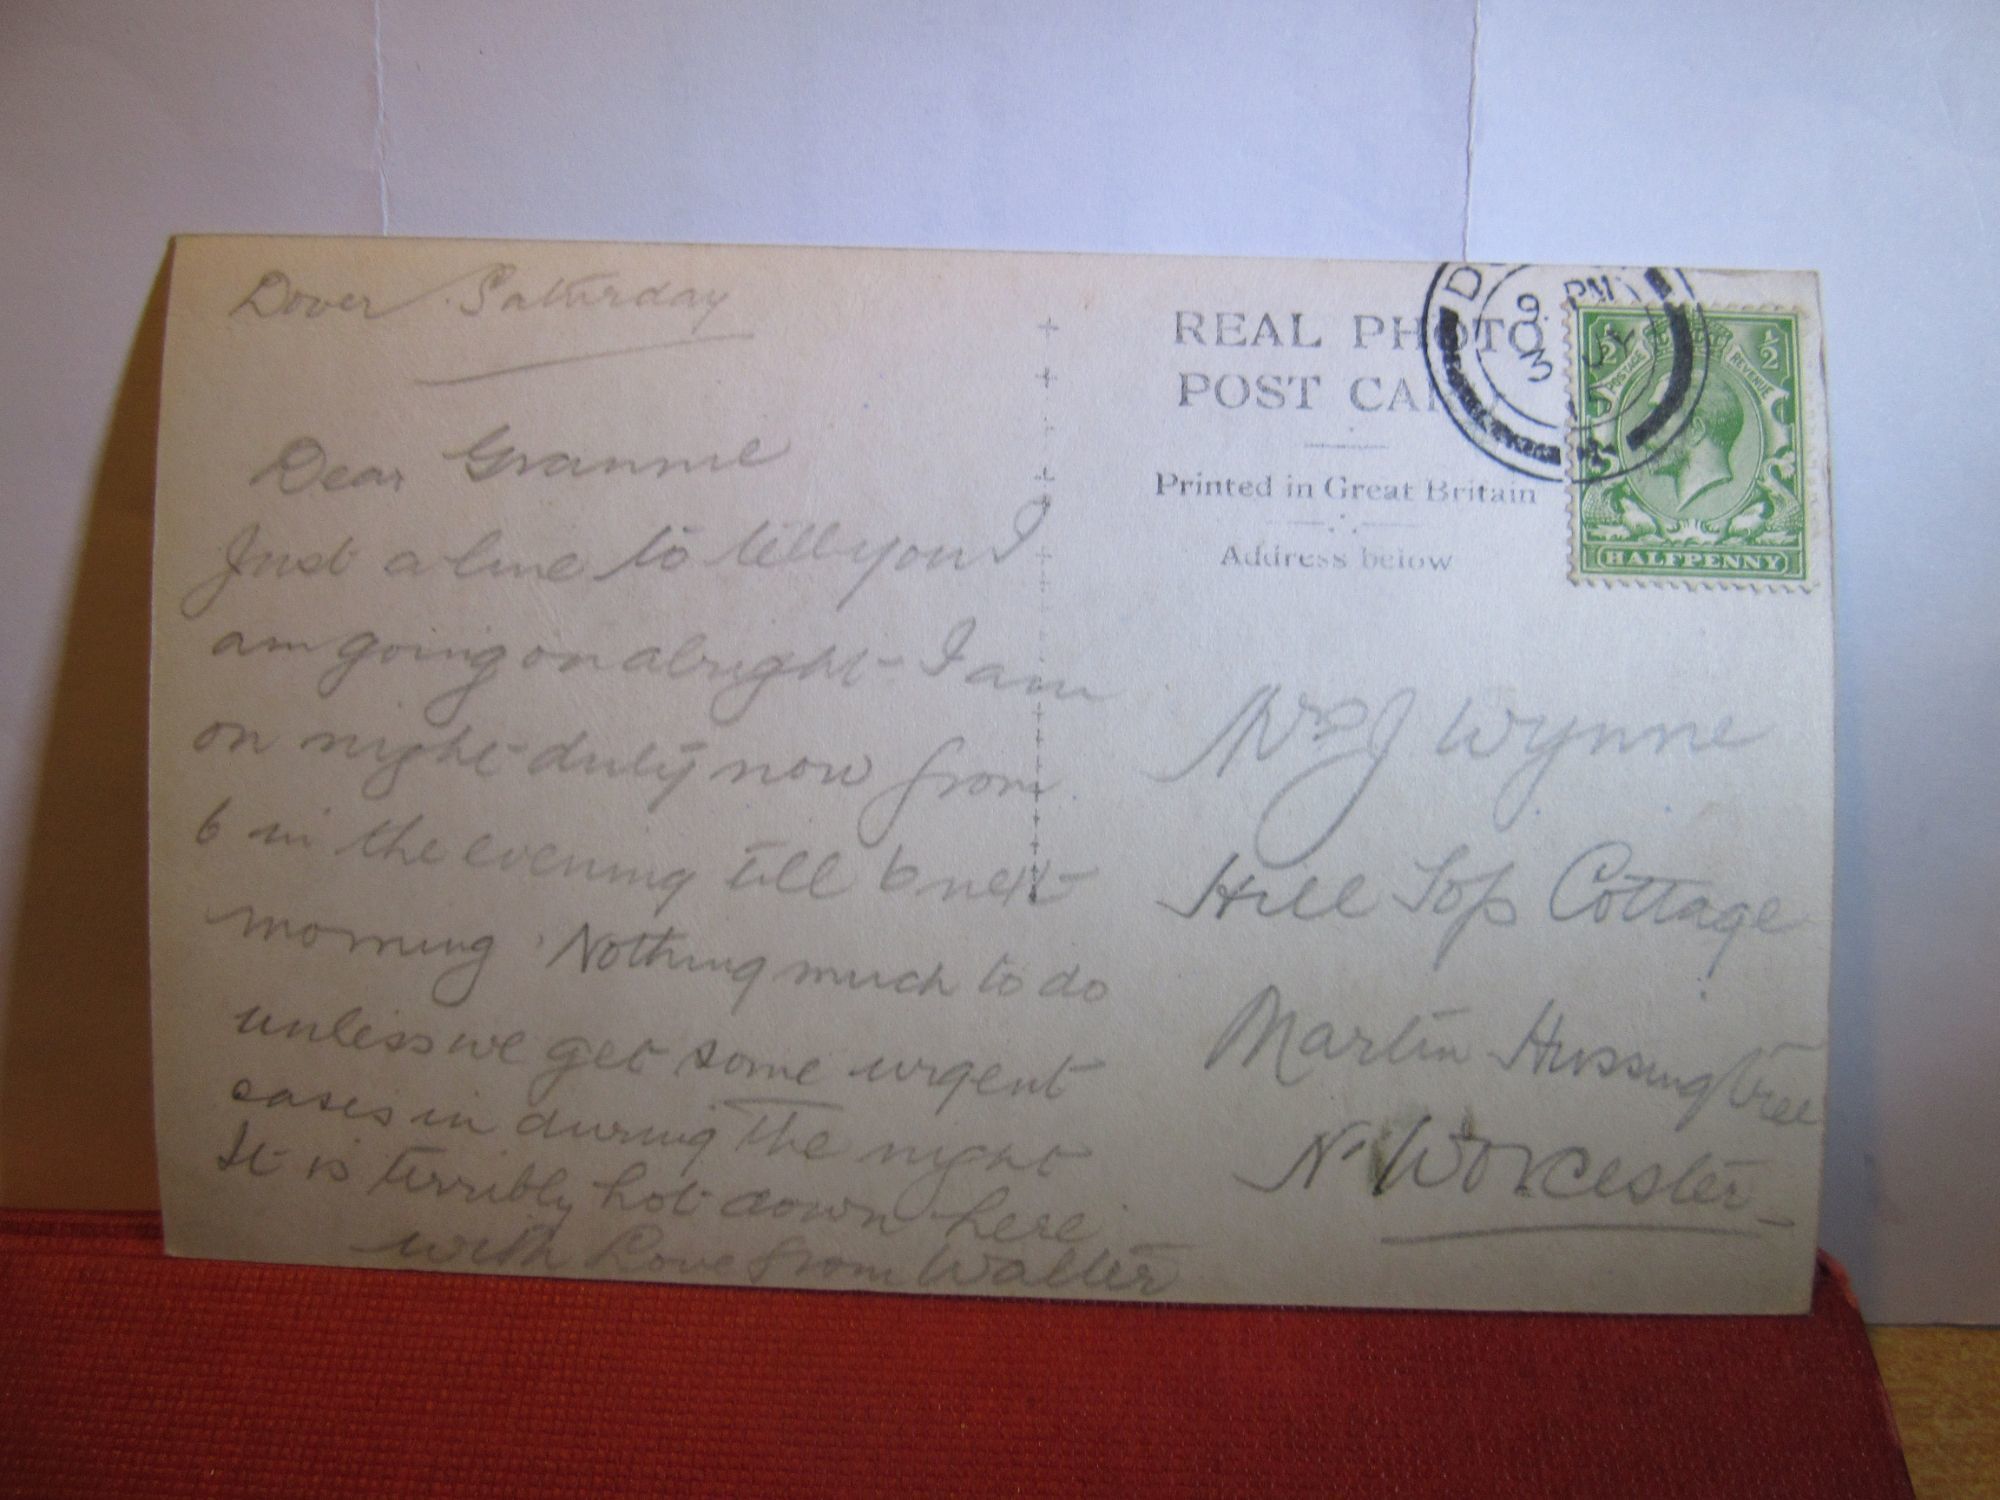 Dover Saturday
Dear Grannie
Just a line to tell you I
am going on alright - I am
on night duty now from
6 in the evening till 6 next
morning. Nothing much to do
unless we get some urgent
cases in during the night
It is terribly hot down here
with Love from Walter
REAL PHOTO
POST CARD
Printed in Great Britain
Address below
9. PM
3 JY
15
½ ½
POSTAGE REVENUE
HALFPENNY
Mrs J Wynne
Hill Top Cottage
Martin Hussingtree
Nr Worcester